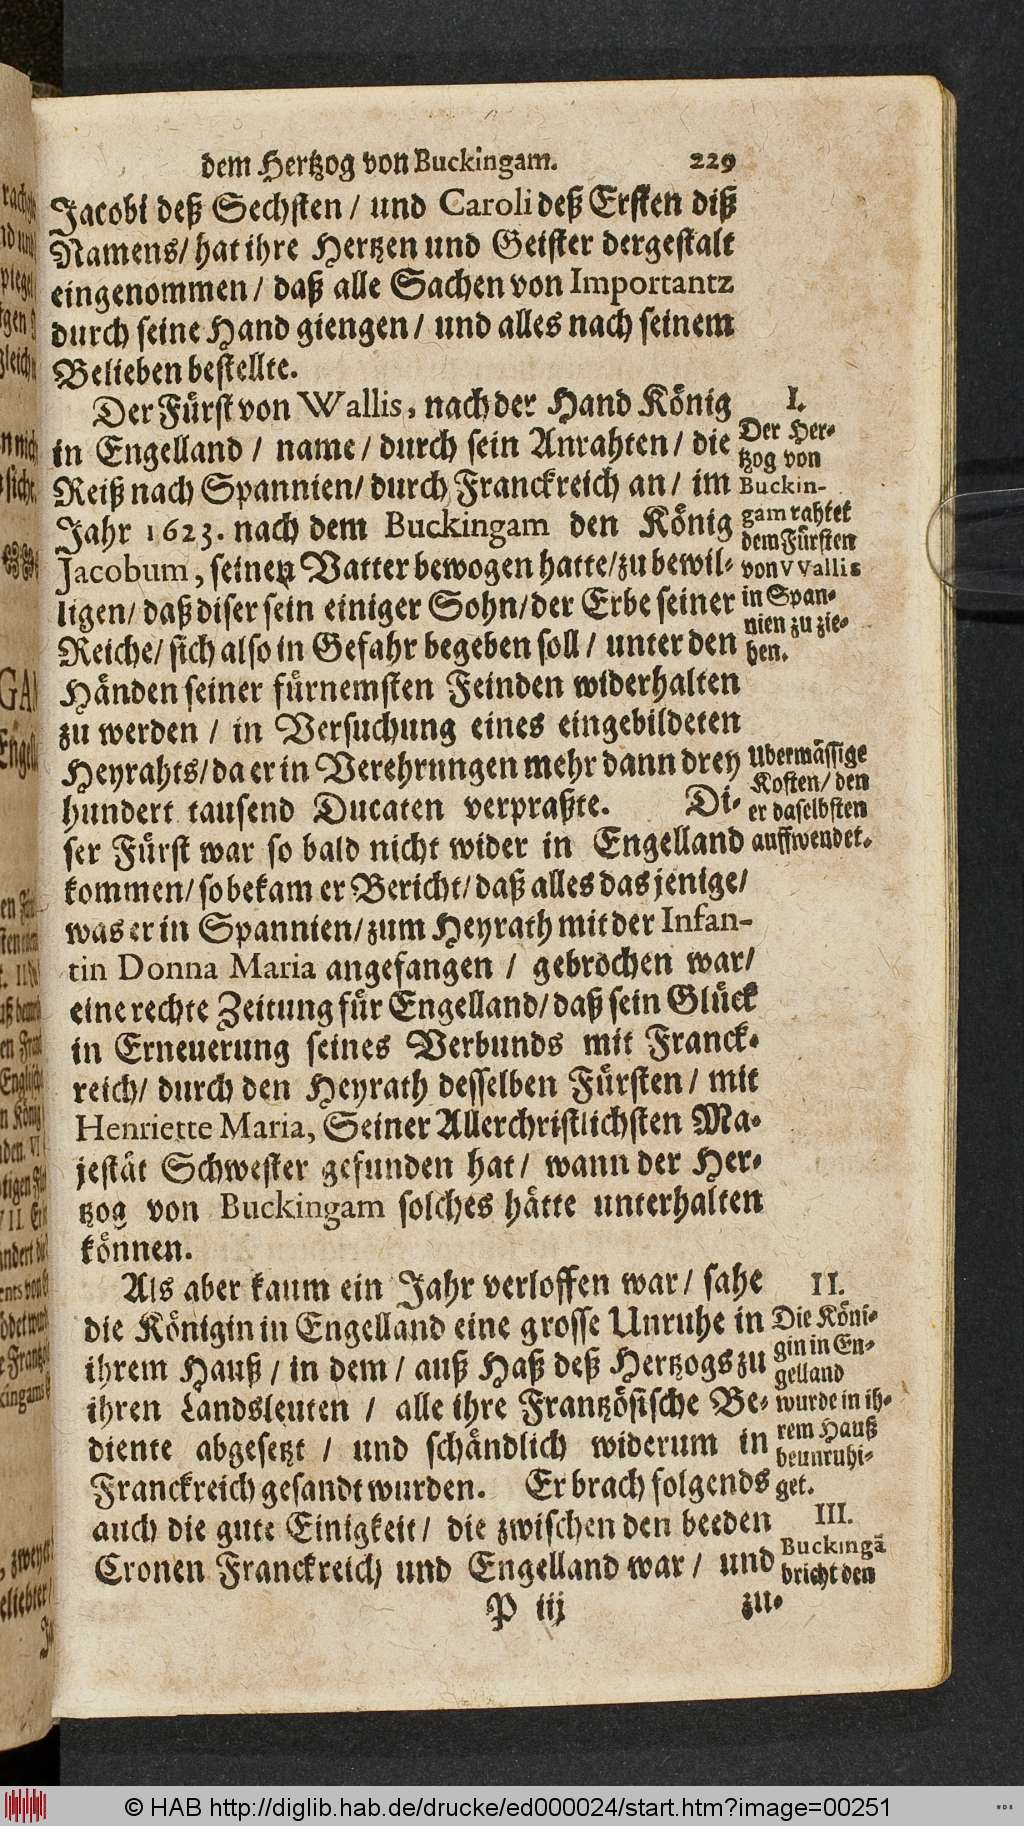 dem Hertzog von Buckingam. 229
Jacobi deß Sechsten / und Caroli deß Ersten diß
Namens/ hat ihre Hertzen und Geister dergestalt
eingenommen / daß alle Sachen von Importantz
durch seine Hand giengen / und alles nach seinem
Belieben bestellte.
Der Fürst von Wallis, nach der Hand König
in Engelland / name / durch sein Anrahten / die
Reiß nach Spannien/ durch Franckreich an / im
Jahr 1623. nach dem Buckingam den König
Jacobum, seinen Vatter bewogen hatte/zu bewil-
ligen/ daß diser sein einiger Sohn/der Erbe seiner
Reiche/ sich also in Gefahr begeben soll / unter den
Händen seiner fürnemsten Feinden widerhalten
zu werden / in Versuchung eines eingebildeten
Heyrahts/da er in Verehrungen mehr dann drey
hundert tausend Ducaten verpraßte. Di-
ser Fürst war so bald nicht wider in Engelland
kommen/ so bekam er Bericht/ daß alles das jenige/
was er in Spannien/zum Heyrath mit der Infan-
tin Donna Maria angefangen / gebrochen war/
eine rechte Zeitung für Engelland/ daß sein Glück
in Erneuerung seines Verbunds mit Franck-
reich/ durch den Heyrath desselben Fürsten / mit
Henriette Maria, Seiner Allerchristlichsten Ma-
jestät Schwester gefunden hat / wann der Her-
tzog von Buckingam solches hätte unterhalten
können.
Als aber kaum ein Jahr verloffen war / sahe
die Königin in Engelland eine grosse Unruhe in
ihrem Hauß / in dem / auß Haß deß Hertzogs zu
ihren Landsleuten / alle ihre Frantzösische Be-
diente abgesetzt / und schändlich widerum in
Franckreich gesandt wurden. Er brach folgends
auch die gute Einigkeit / die zwischen den beeden
Cronen Franckreich und Engelland war / und
P iij zu-
I.
Der Her-
tzog von
Buckin-
gam rahtet
dem Fürsten
von VVallis
in Span-
nien zu zie-
hen.
Ubermässige
Kosten/ den
er daselbsten
auffwendet.
II.
Die Köni-
gin in En-
gelland
wurde in ih-
rem Hauß
beunruhi-
get.
III.
Buckingã
bricht den
© HAB http://diglib.hab.de/drucke/ed000024/start.htm?image=00251